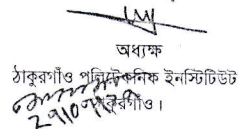 অধ্যক্ষ
ঠাকুরগাঁও পলিটেকনিক ইনস্টিটিউট
ঠাকুরগাঁও।